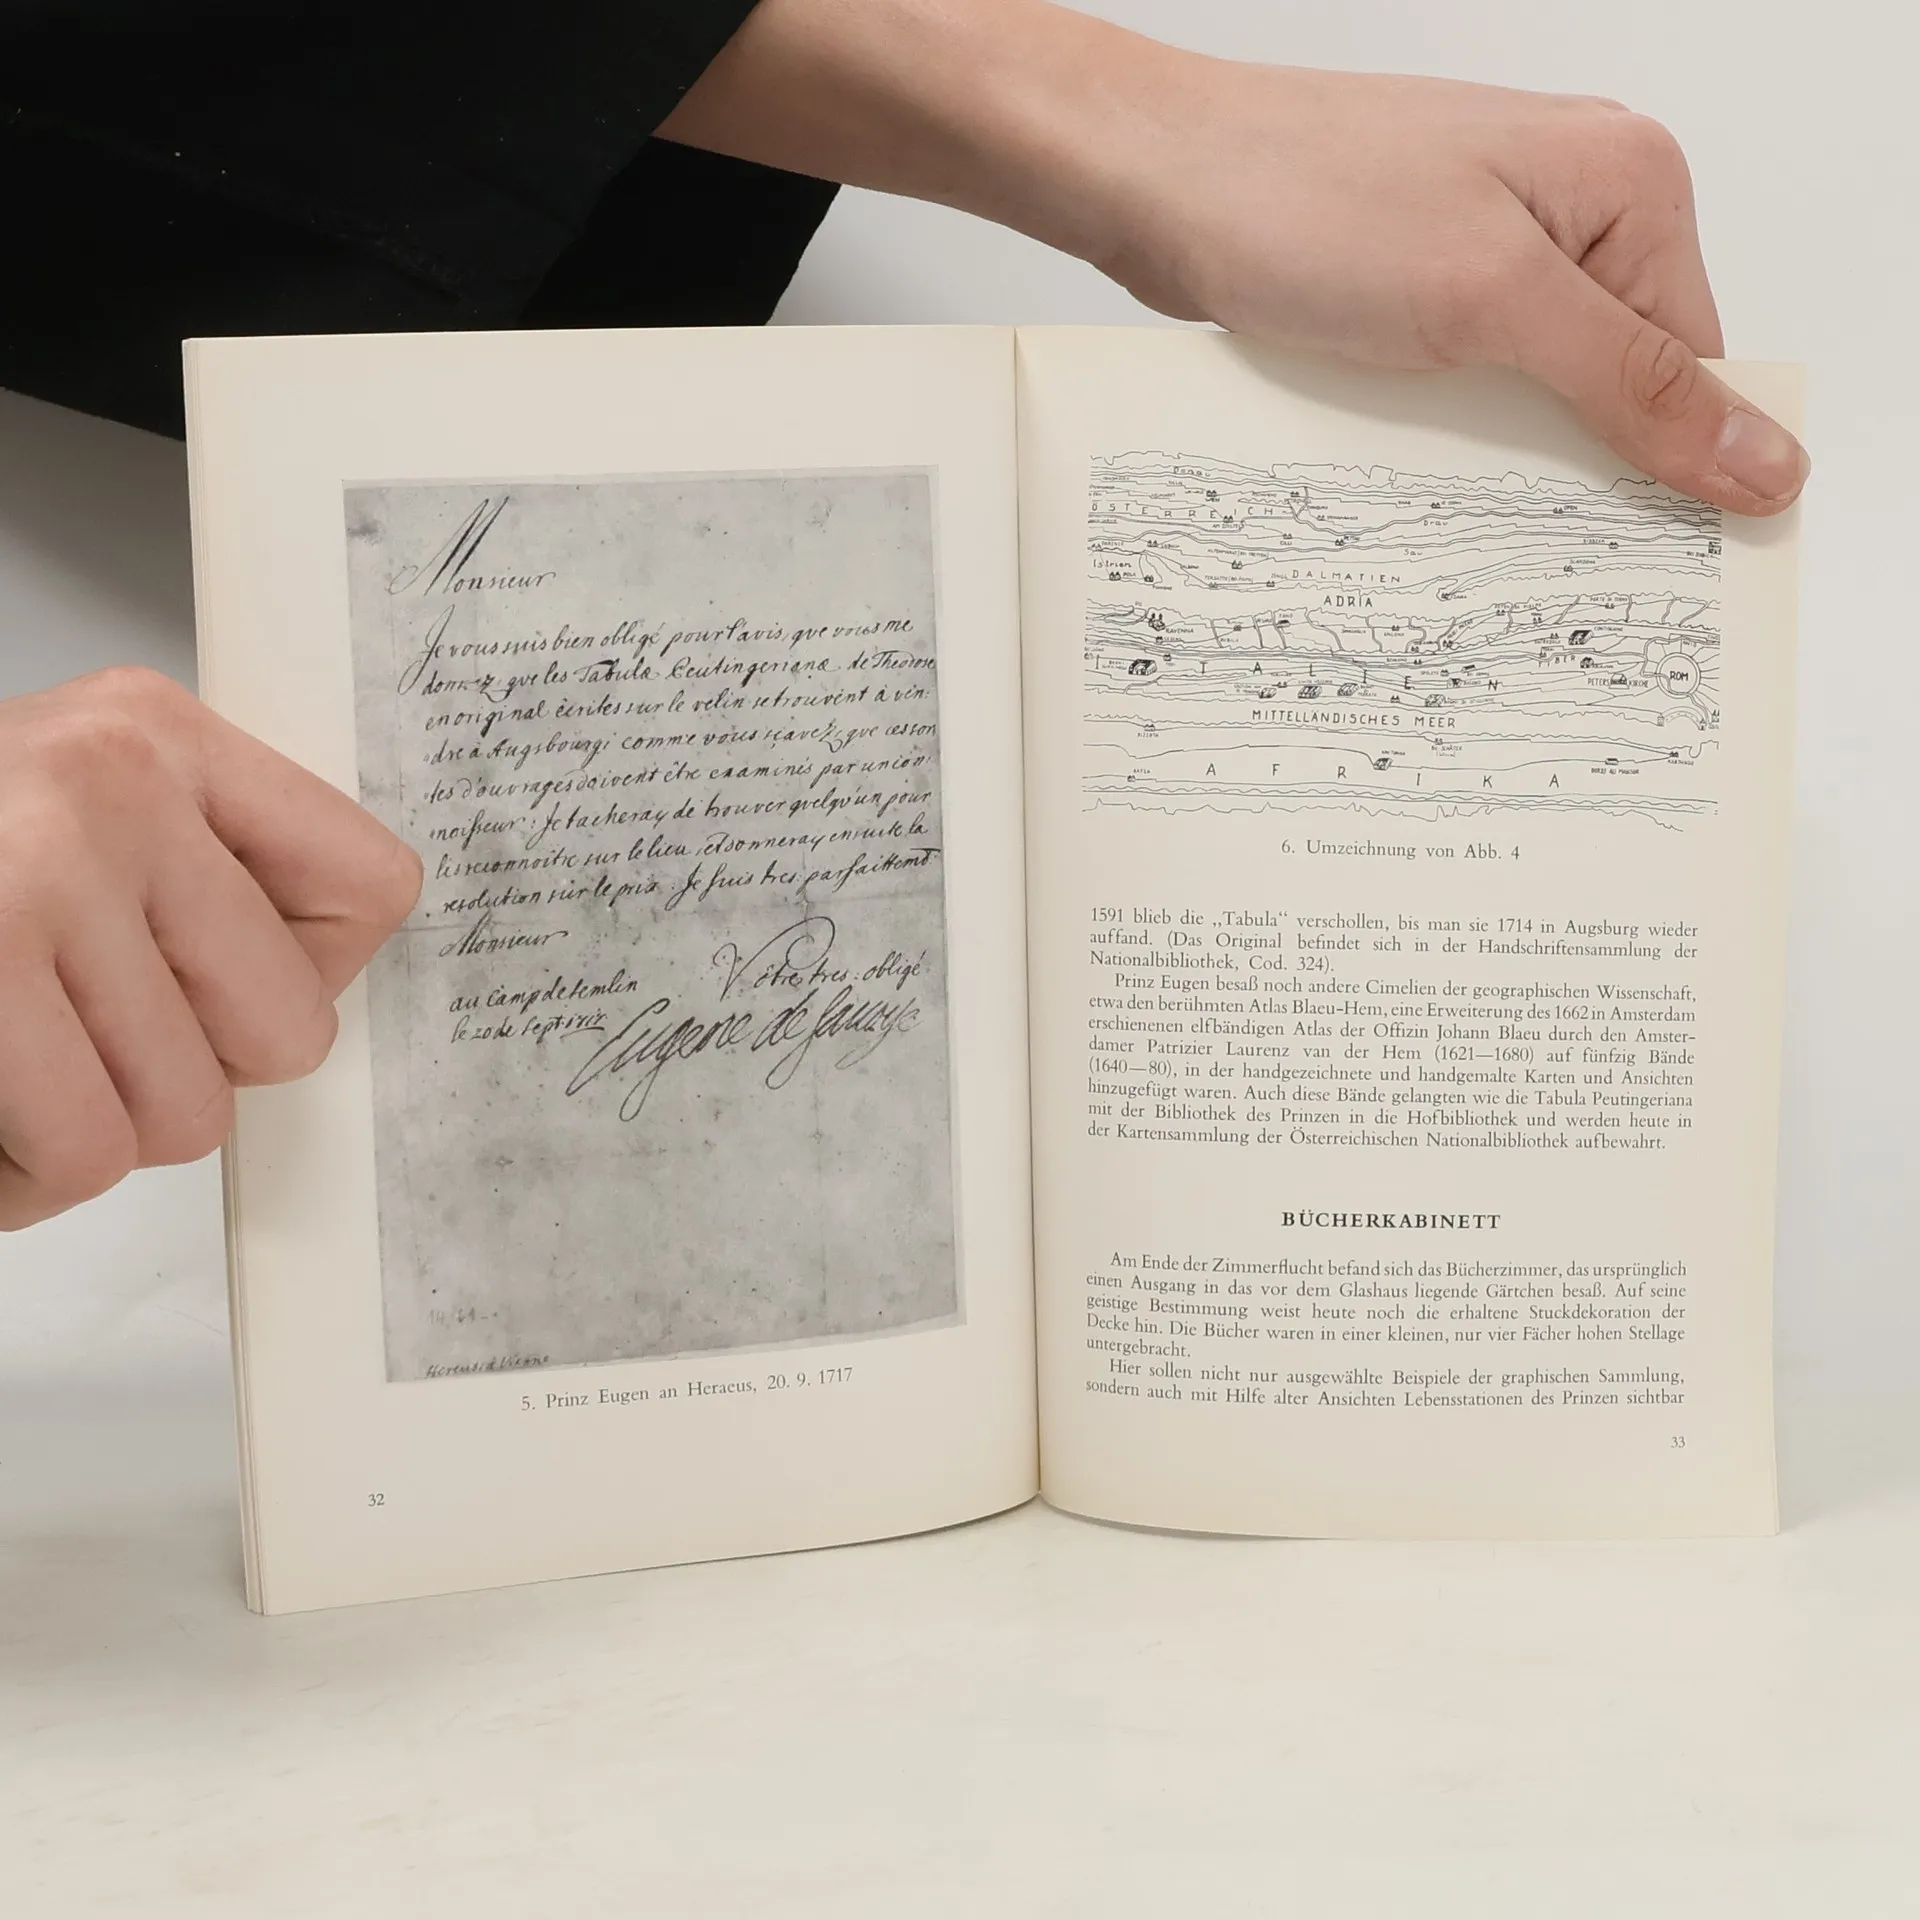 Monsieur
Je vous suis bien obligé pour l'avis, que vous me
donnez que les Tabulæ Peutingerianæ de Theodose
en original ecrites sur le velin se trouvent à ven:
dre à Augsbourg; comme vous sçavez, que ces sor
tes d'ouvrages doivent être examinés par un con:
noisseur: Je tacheray de trouver quelqu'un pour
les reconnoitre sur le lieu, et donneray ensuite la
resolution sur le prix. Je suis tres parfaittemt
Monsieur
Vôtre tres: obligé
au Camp de Semlin
le 20 de Sept: 1717
Eugene de Savoye
5. Prinz Eugen an Heraeus, 20. 9. 1717
32
Donau
ÖSTERREICH
Drau
Sau
Istrien
DALMATIEN
ADRIA
RAVENNA
ITALIEN
TIBER
PETERSKIRCHE
ROM
MITTELLÄNDISCHES MEER
AFRIKA
6. Umzeichnung von Abb. 4
1591 blieb die „Tabula“ verschollen, bis man sie 1714 in Augsburg wieder
auffand. (Das Original befindet sich in der Handschriftensammlung der
Nationalbibliothek, Cod. 324).
Prinz Eugen besaß noch andere Cimelien der geographischen Wissenschaft,
etwa den berühmten Atlas Blaeu-Hem, eine Erweiterung des 1662 in Amsterdam
erschienenen elfbändigen Atlas der Offizin Johann Blaeu durch den Amster-
damer Patrizier Laurenz van der Hem (1621—1680) auf fünfzig Bände
(1640—80), in der handgezeichnete und handgemalte Karten und Ansichten
hinzugefügt waren. Auch diese Bände gelangten wie die Tabula Peutingeriana
mit der Bibliothek des Prinzen in die Hofbibliothek und werden heute in
der Kartensammlung der Österreichischen Nationalbibliothek aufbewahrt.
BÜCHERKABINETT
Am Ende der Zimmerflucht befand sich das Bücherzimmer, das ursprünglich
einen Ausgang in das vor dem Glashaus liegende Gärtchen besaß. Auf seine
geistige Bestimmung weist heute noch die erhaltene Stuckdekoration der
Decke hin. Die Bücher waren in einer kleinen, nur vier Fächer hohen Stellage
untergebracht.
Hier sollen nicht nur ausgewählte Beispiele der graphischen Sammlung,
sondern auch mit Hilfe alter Ansichten Lebensstationen des Prinzen sichtbar
33